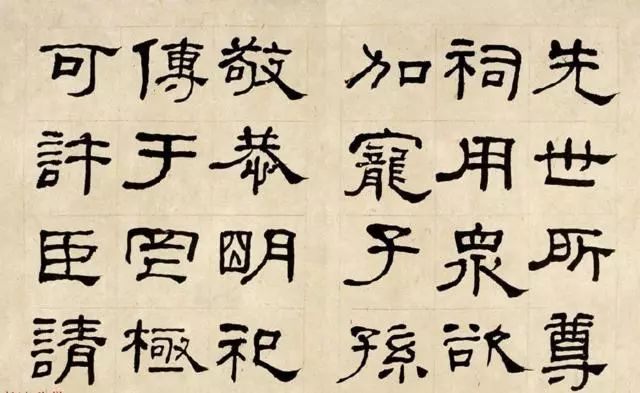 先世所尊
祠用眾欲
加寵子孫
敬恭明祀
傳于罔極
可許臣請